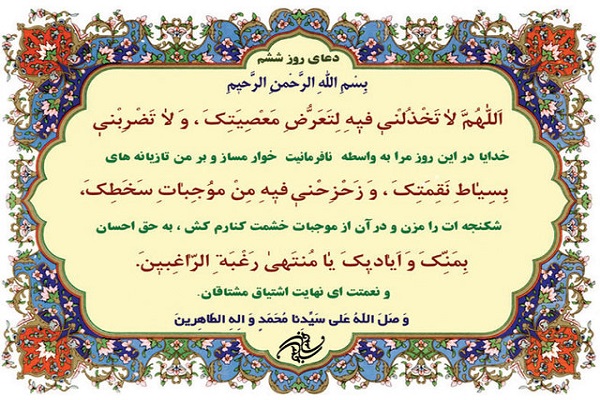 دعای روز ششم
بِسْمِ اللهِ الرَّحْمنِ الرَّحیمِ
اَللّهُمَّ لاٰ تَخْذُلْني فیهِ لِتَعَرُّضِ مَعْصِیَتِکَ ، وَ لاٰ تَضْرِبْني
خدایا در این روز مرا به واسطه نافرمانیت خوار مساز و بر من تازیانه های
بِسِیاطِ نَقِمَتِکَ ، وَ زَحْزِحْني فیهِ مِنْ مُوجِبٰاتِ سَخَطِکَ،
شکنجه ات را مزن و در آن از موجبات خشمت کنارم کش ، به حق احسان
بِمَنِّکَ وَ اَیادیکَ یا مُنتَهیٰ رَغْبَةِ الرّاغِبینَ.
و نعمتت ای نهایت اشتیاق مشتاقان.
وَ صَلَ اللهُ عَلی سَیِّدِنا مُحَمَدٍ وَ الِهِ الطّاهِرینَ